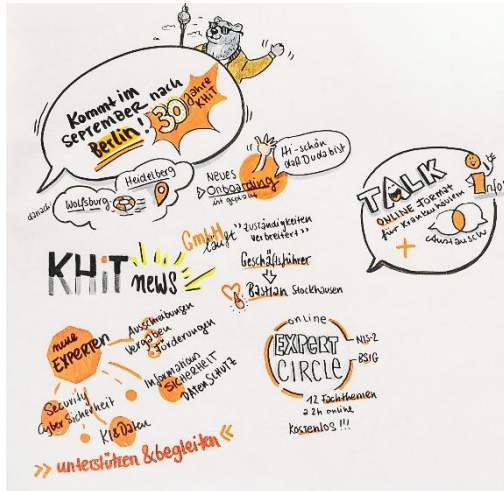 Kommt im
SEPTEMBER nach
Berlin!
30
Jahre
KHiT
danach:
Wolfsburg
Heidelberg
Neues
Onboarding
ist geplant
Hi-schön
daß Du da bist
TALK
ONLINE Format
für Krankenhäusern
+
Info
Austausch
GmbH
läuft
"Zuständigkeiten
verbreitert"
Geschäftsführer
Bastian Stockhausen
KHiT news
neue
EXPERTEN
Ausschreibungen
Vergaben
Förderungen
Information
SICHERHEIT
DATENSCHUTZ
Security
Cyber Sicherheit
KI & Daten
>> unterstützen & begleiten <<
online
EXPERT
CIRCLE
NIS-2
BSIG
12 Fachthemen
a 2h online
Kostenlos!!!